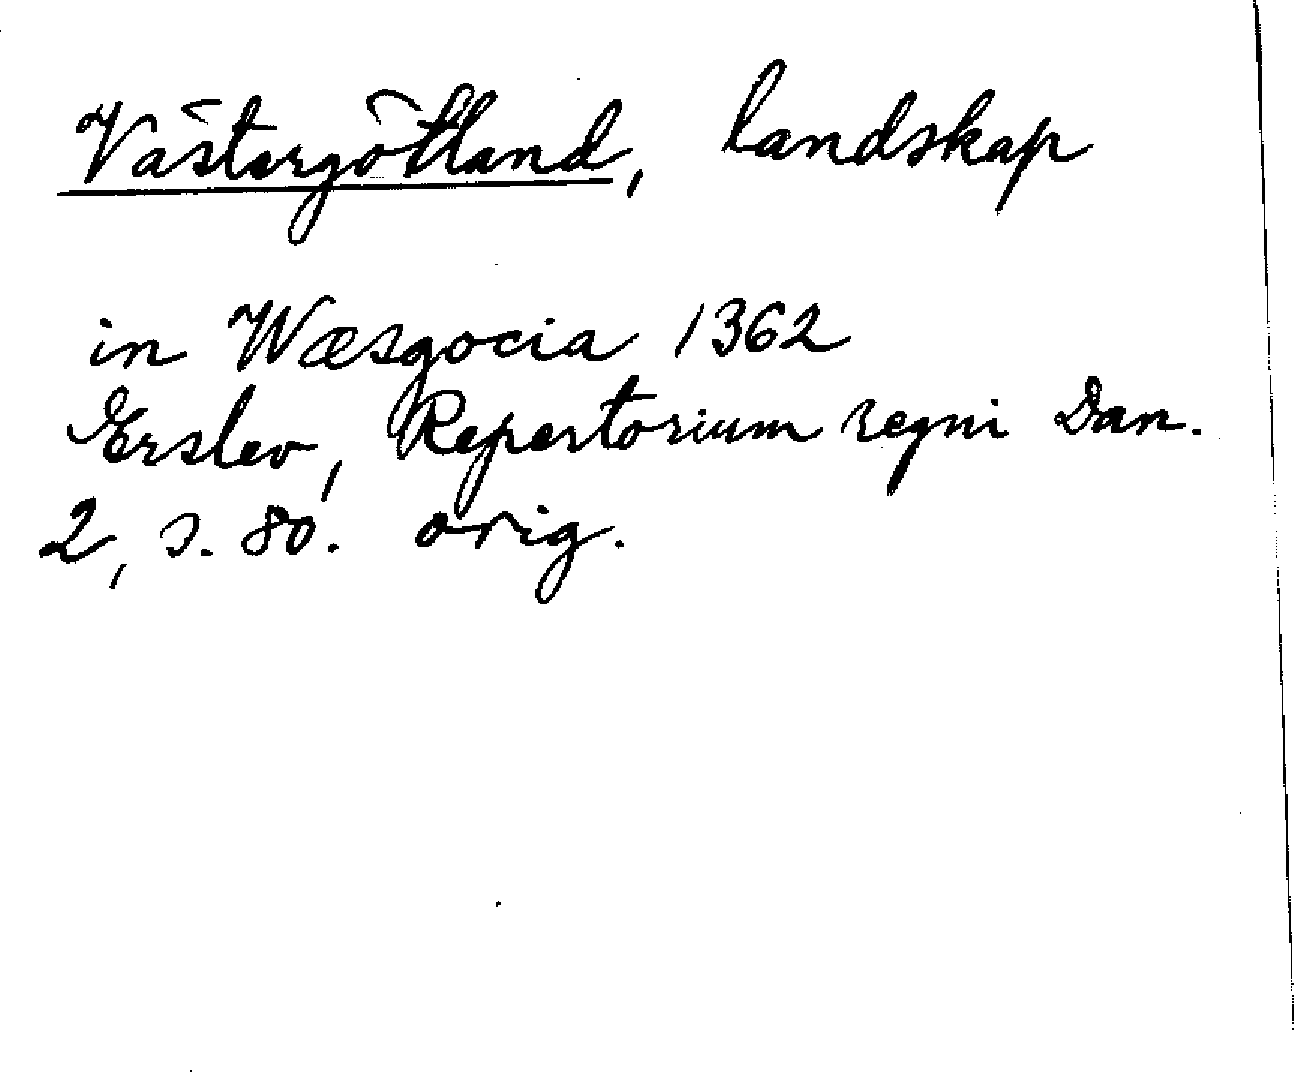 Västergötland, landskap
in Wæsgocia 1362
Erslev, Repertorium regni Dan.
2, s. 80. orig.